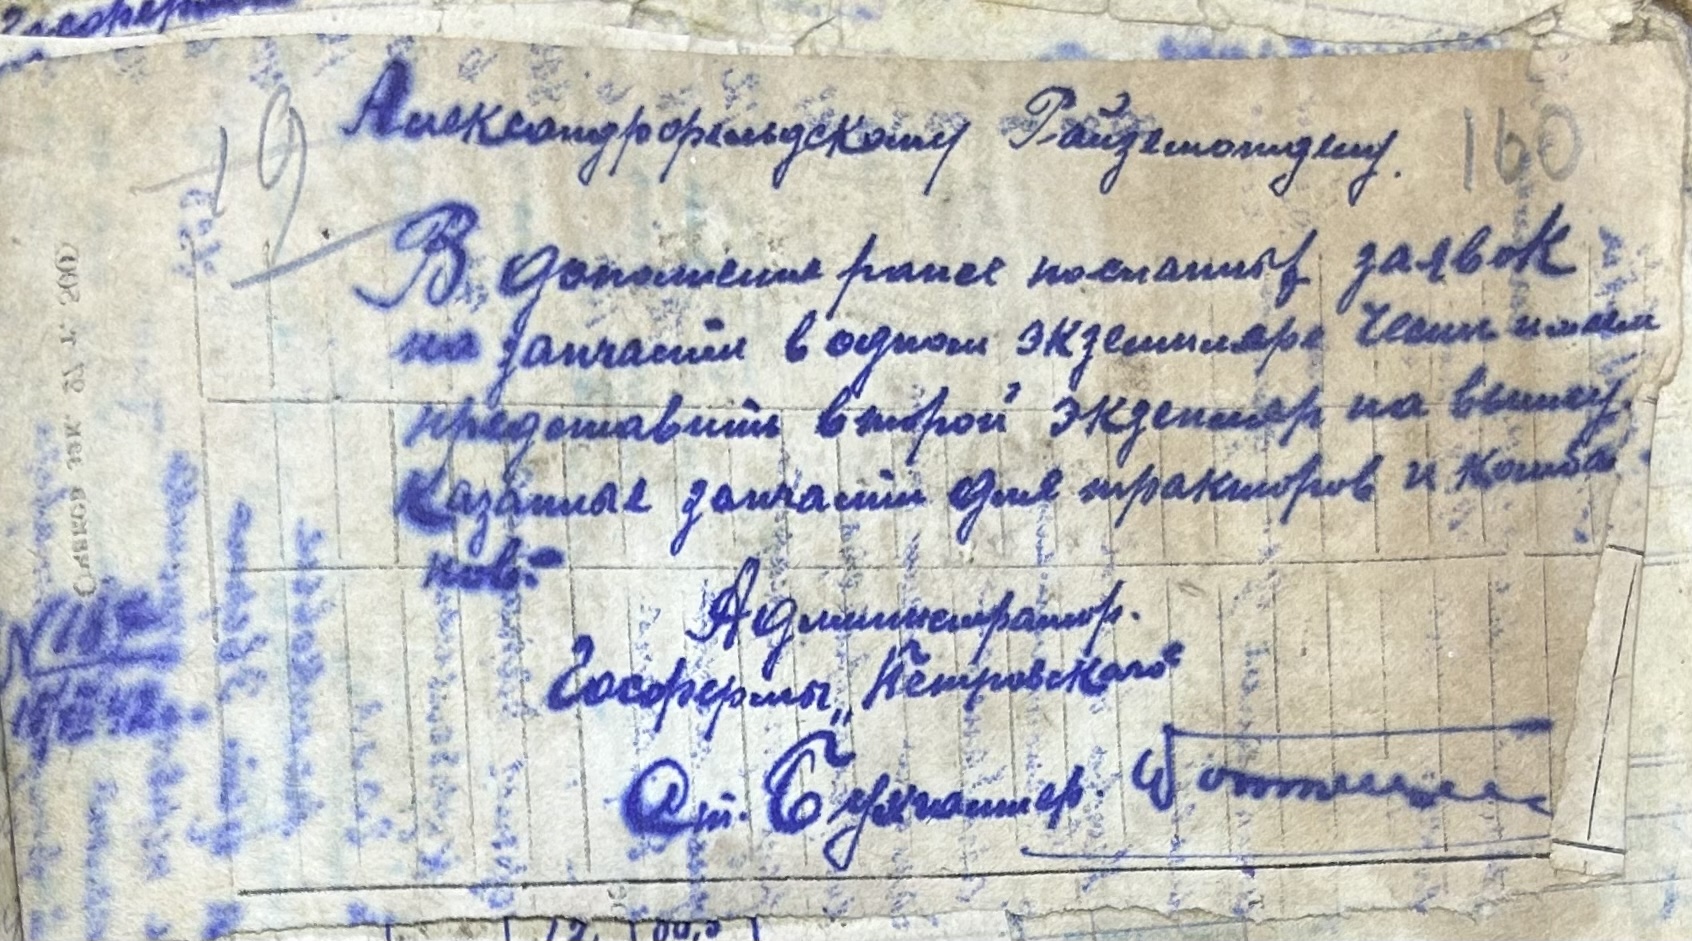 19
160
Александрфельдскому Райземотделу.
В дополнение ранее посланных заявок
на запчасти в одном экземпляре честь имеем
представить второй экземпляр на вышеу
казанные запчасти для тракторов и комбай
нов.-
Администратор.
Госфермы „Петровского"
Ст. Бухгалтер.